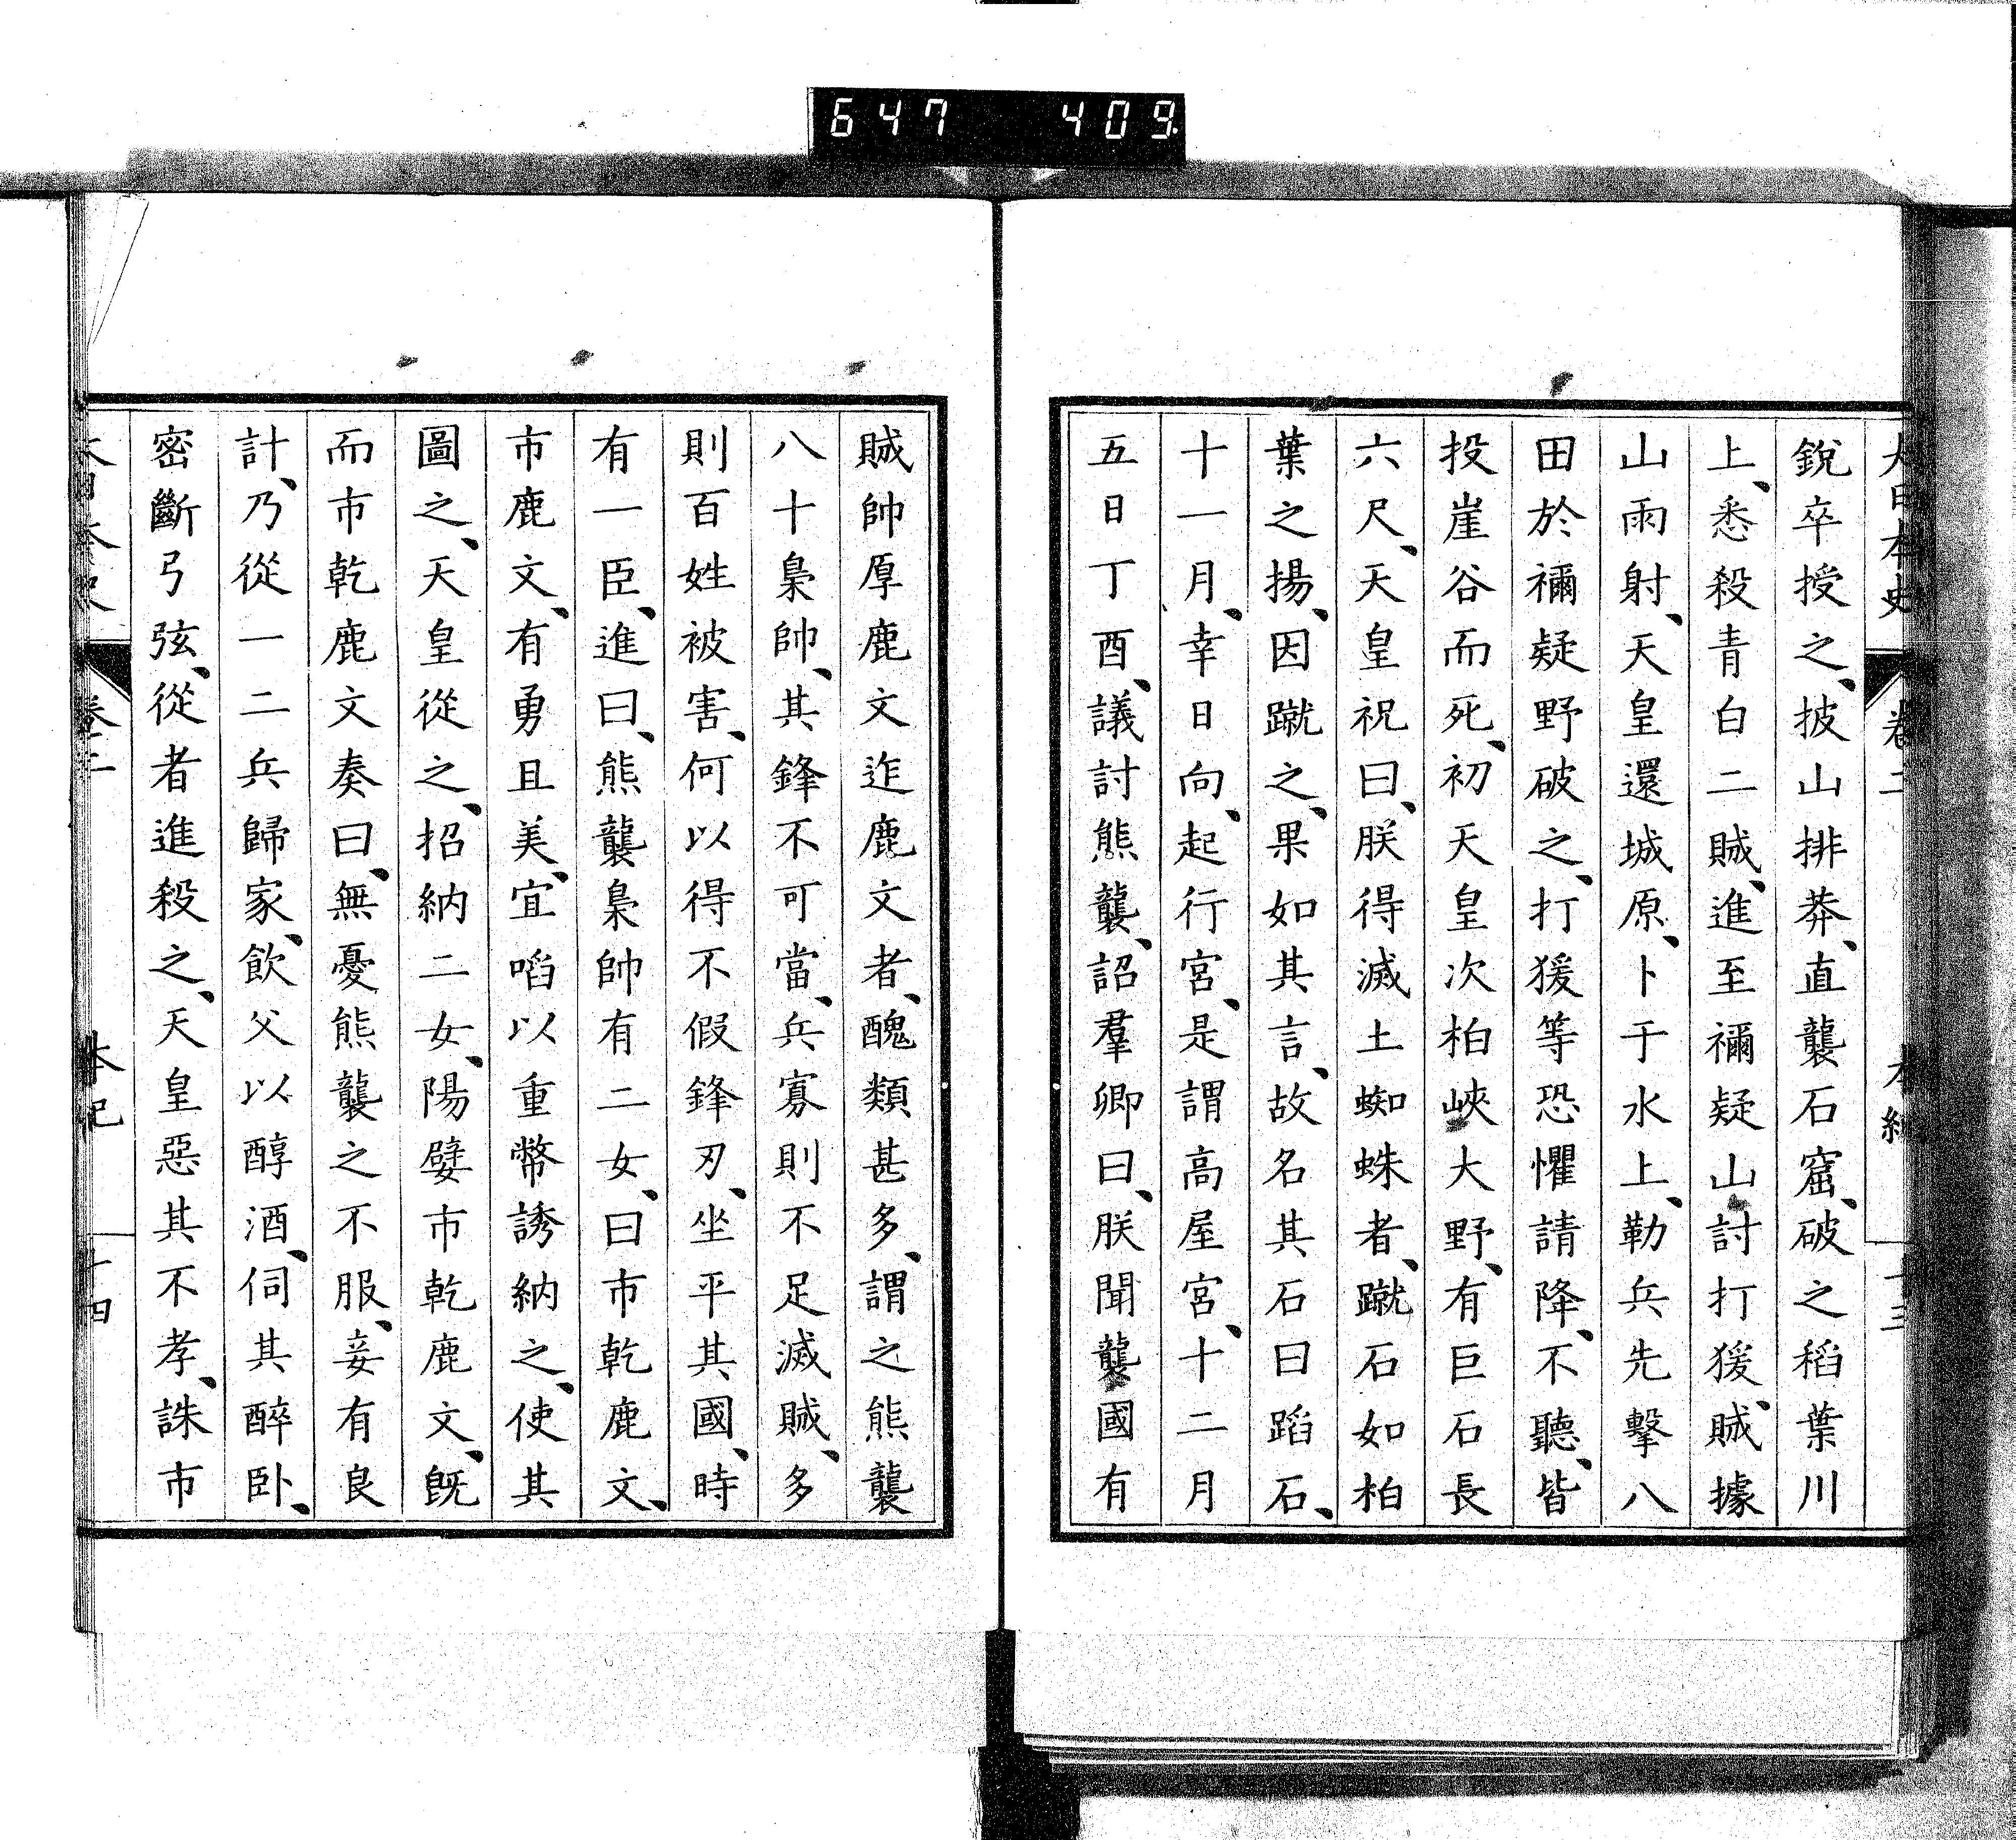 647 409
大日本史 卷二 本紀 十三
銳卒授之、披山排莽、直襲石窟、破之稻葉川
上、悉殺青白二賊、進至禰疑山討打猨、賊據
山雨射、天皇還城原、卜于水上、勒兵先擊八
田於禰疑野破之、打猨等恐懼請降、不聽、皆
投崖谷而死、初天皇次柏峽大野、有巨石長
六尺、天皇祝曰、朕得滅土蜘蛛者、蹴石如柏
葉之揚、因蹴之、果如其言、故名其石曰蹈石、
十一月、幸日向、起行宮、是謂高屋宮、十二月
五日丁酉、議討熊襲、詔羣卿曰、朕聞襲國有
賊帥厚鹿文迮鹿文者、醜類甚多、謂之熊襲
八十梟帥、其鋒不可當、兵寡則不足滅賊、多
則百姓被害、何以得不假鋒刃、坐平其國、時
有一臣、進曰、熊襲梟帥有二女、曰市乾鹿文、
市鹿文、有勇且美、宜啗以重幣誘納之、使其
圖之、天皇從之、招納二女、陽嬖市乾鹿文、旣
而市乾鹿文奏曰、無憂熊襲之不服、妾有良
計、乃從一二兵歸家、飲父以醇酒、伺其醉臥、
密斷弓弦、從者進殺之、天皇惡其不孝、誅市
大日本史 卷二 本紀 十四